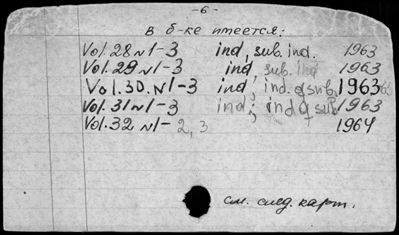 -6-
в б-ке имеется:
Vol. 28 N1-3 ind, sub. ind. 1963
Vol. 29 N1-3 ind, sub. ind 1963
Vol. 30. N1-3 ind, ind. of sub, 1963
Vol. 31 N1-3 ind; ind of sub 1963
Vol. 32 N1-2, 3 1964
см. след. карт.